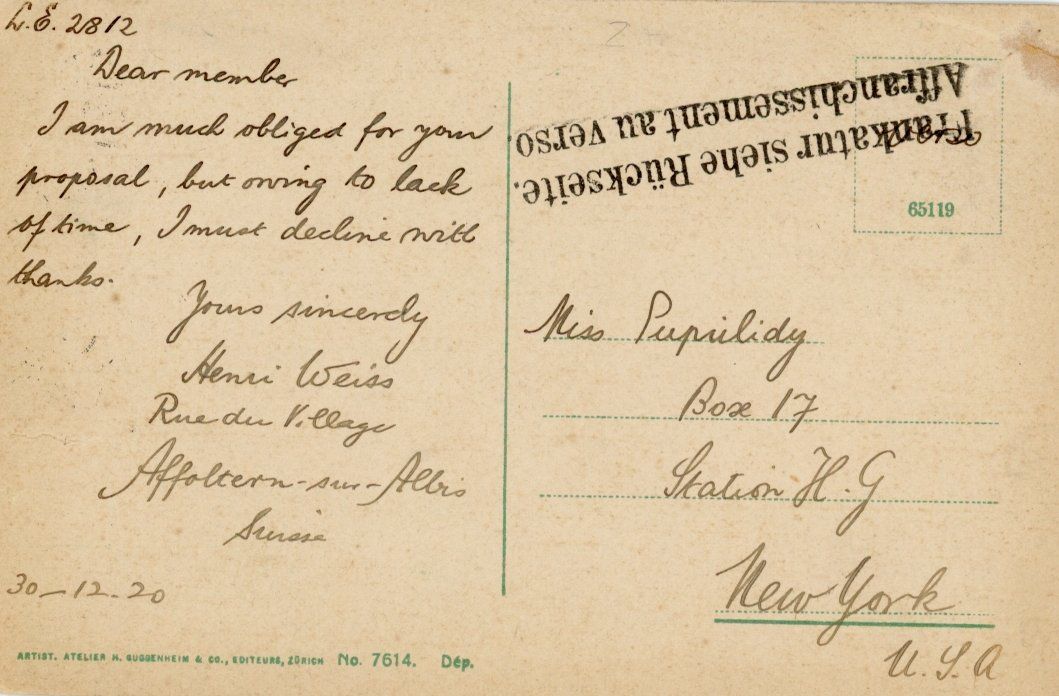 L.E. 2812
Dear member
I am much obliged for your
proposal, but owing to lack
of time, I must decline with
thanks.
Yours sincerely
Henri Weiss
Rue du Village
Affoltern-sur-Albis
Suisse
30-12-20
ARTIST. ATELIER H. GUGGENHEIM & CO., EDITEURS, ZÜRICH No. 7614. Dép.
Frankatur siehe Rückseite.
Affranchissement au verso.
65119
Miss Puprilidy
Box 17
Station H.G
New York
U.S.A